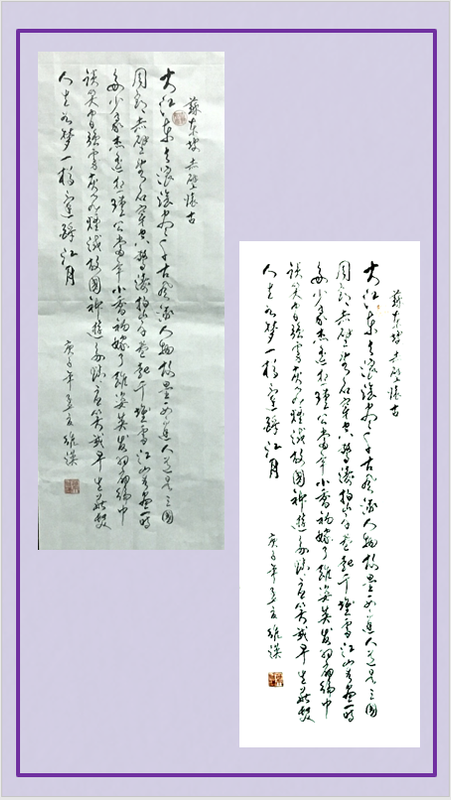 蘇東坡 赤壁懷古
大江東去浪淘盡千古風流人物故壘西邊人道是三國
周郎赤壁亂石穿空驚濤拍岸卷起千堆雪江山如畫一時
多少豪杰遙想瑾公當年小喬初嫁了雄姿英發羽扇綸巾
談笑間強虜灰飛煙滅故國神遊多情應笑我早生華髮
人生如夢一樽還酹江月
庚子年
蘇東坡 赤壁懷古
大江東去浪淘盡千古風流人物故壘西邊人道是三國
周郎赤壁亂石穿空驚濤拍岸卷起千堆雪江山如畫一時
多少豪杰遙想瑾公當年小喬初嫁了雄姿英發羽扇綸巾
談笑間強虜灰飛煙滅故國神遊多情應笑我早生華髮
人生如夢一樽還酹江月
庚子年